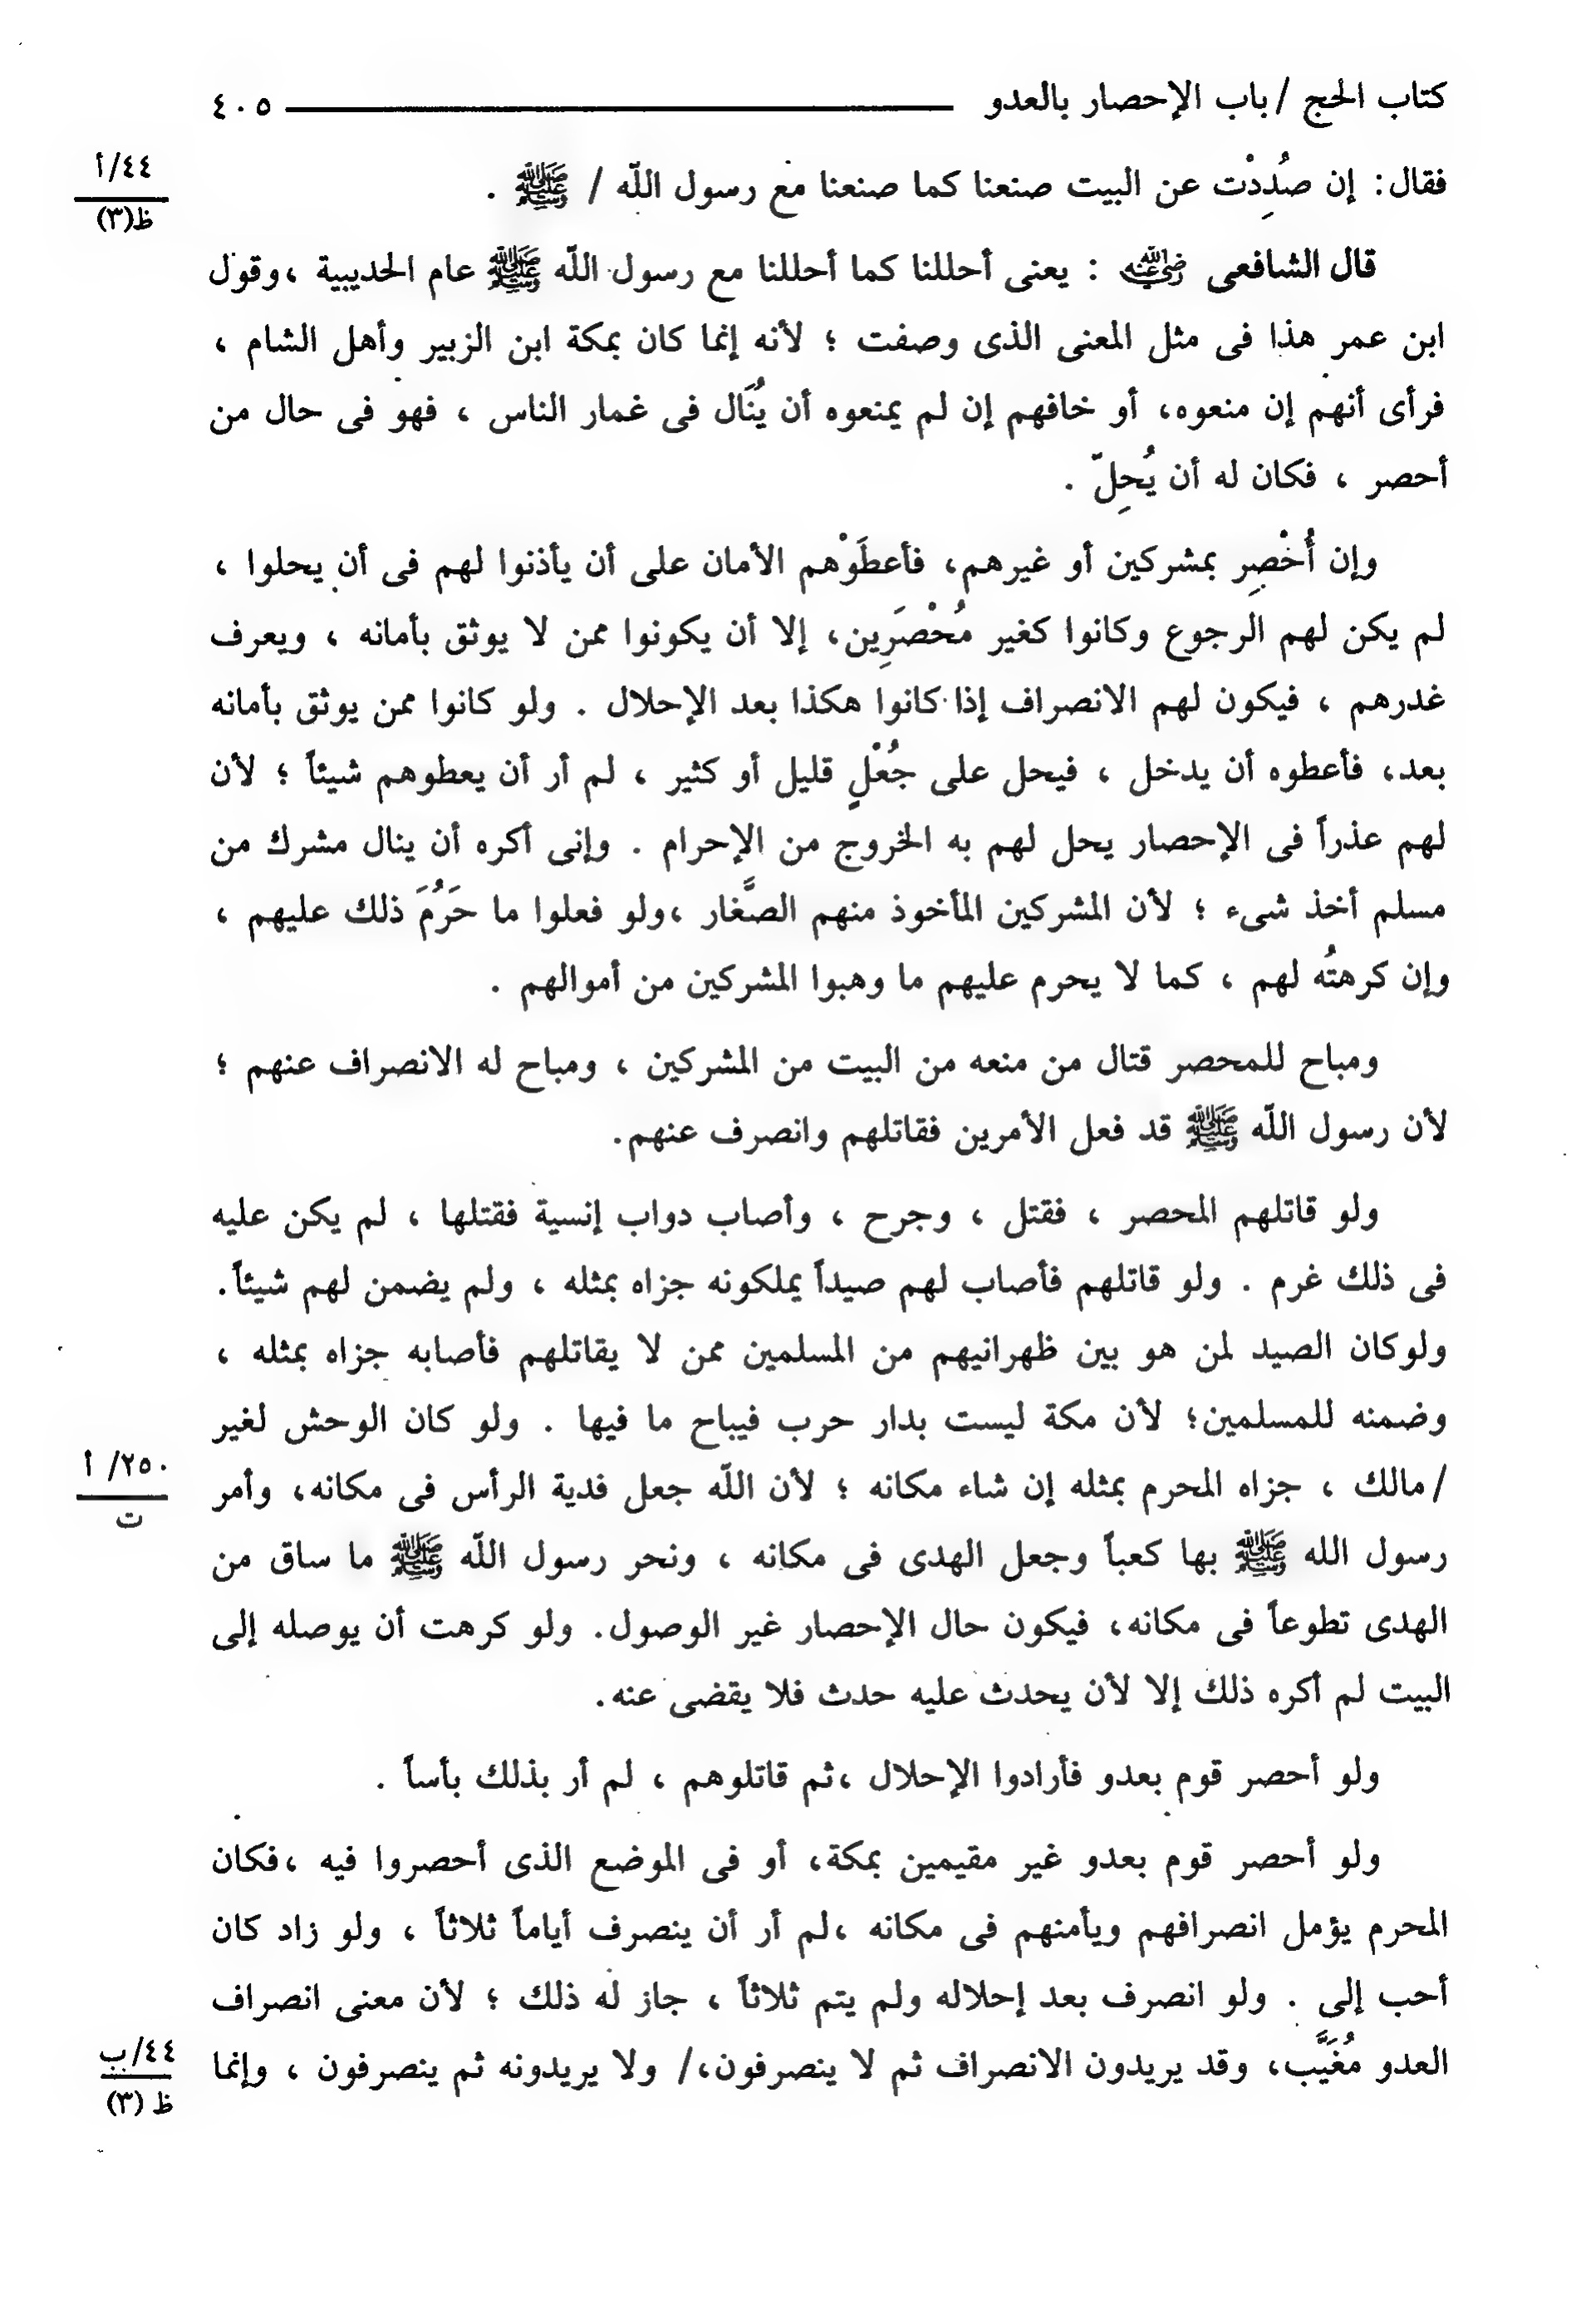 كتاب الحج / باب الإحصار بالعدو ٤٠٥
فقال: إن صُدِدْت عن البيت صنعنا كما صنعنا مع رسول اللّه / ﷺ .
٤٤/أ
ظ(٣)
قال الشافعى رضي الله عنه : يعنى أحللنا كما أحللنا مع رسول اللّه ﷺ عام الحديبية ،وقول
ابن عمر هذا فى مثل المعنى الذى وصفت ؛ لأنه إنما كان بمكة ابن الزبير وأهل الشام ،
فرأى أنهم إن منعوه، أو خافهم إن لم يمنعوه أن يُنَال فى غمار الناس ، فهو فى حال من
أحصر ، فكان له أن يُحِلّ .
وإن أُحْصِر بمشركين أو غيرهم، فأعطَوْهم الأمان على أن يأذنوا لهم فى أن يحلوا ،
لم يكن لهم الرجوع وكانوا كغير مُحْصَرِين، إلا أن يكونوا ممن لا يوثق بأمانه ، ويعرف
غدرهم ، فيكون لهم الانصراف إذا كانوا هكذا بعد الإحلال . ولو كانوا ممن يوثق بأمانه
بعد، فأعطوه أن يدخل ، فيحل على جُعْلٍ قليل أو كثير ، لم أر أن يعطوهم شيئاً ؛ لأن
لهم عذراً فى الإحصار يحل لهم به الخروج من الإحرام . وإنى أكره أن ينال مشرك من
مسلم أخذ شىء ؛ لأن المشركين المأخوذ منهم الصَّغار ،ولو فعلوا ما حَرُمَ ذلك عليهم ،
وإن كرهتُه لهم ، كما لا يحرم عليهم ما وهبوا المشركين من أموالهم .
ومباح للمحصر قتال من منعه من البيت من المشركين ، ومباح له الانصراف عنهم ؛
لأن رسول اللّه ﷺ قد فعل الأمرين فقاتلهم وانصرف عنهم.
ولو قاتلهم المحصر ، فقتل ، وجرح ، وأصاب دواب إنسية فقتلها ، لم يكن عليه
فى ذلك غرم . ولو قاتلهم فأصاب لهم صيداً يملكونه جزاه بمثله ، ولم يضمن لهم شيئاً.
ولوكان الصيد لمن هو بين ظهرانيهم من المسلمين ممن لا يقاتلهم فأصابه جزاه بمثله ،
وضمنه للمسلمين؛ لأن مكة ليست بدار حرب فيباح ما فيها . ولو كان الوحش لغير
/ مالك ، جزاه المحرم بمثله إن شاء مكانه ؛ لأن اللّه جعل فدية الرأس فى مكانه، وأمر
٢٥٠/ أ
ت
رسول الله ﷺ بها كعباً وجعل الهدى فى مكانه ، ونحر رسول اللّه ﷺ ما ساق من
الهدى تطوعاً فى مكانه، فيكون حال الإحصار غير الوصول. ولو كرهت أن يوصله إلى
البيت لم أكره ذلك إلا لأن يحدث عليه حدث فلا يقضى عنه.
ولو أحصر قوم بعدو فأرادوا الإحلال ،ثم قاتلوهم ، لم أر بذلك بأساً .
ولو أحصر قوم بعدو غير مقيمين بمكة، أو فى الموضع الذى أحصروا فيه ،فكان
المحرم يؤمل انصرافهم ويأمنهم فى مكانه ،لم أر أن ينصرف أياماً ثلاثاً ، ولو زاد كان
أحب إلى . ولو انصرف بعد إحلاله ولم يتم ثلاثاً ، جاز له ذلك ؛ لأن معنى انصراف
العدو مُغَيَّب، وقد يريدون الانصراف ثم لا ينصرفون،/ ولا يريدونه ثم ينصرفون ، وإنما
٤٤/ب
ظ (٣)